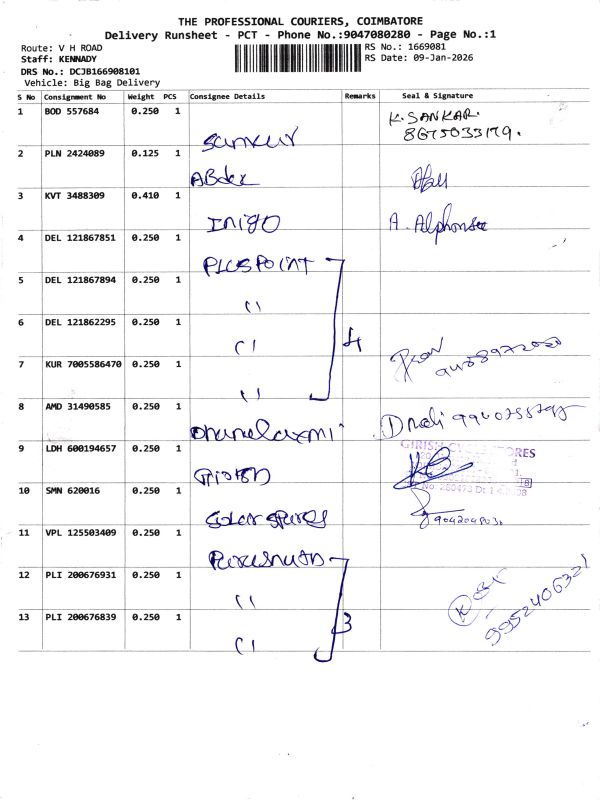 THE PROFESSIONAL COURIERS, COIMBATORE
Delivery Runsheet - PCT - Phone No.:9047080280 - Page No.:1
Route: V H ROAD
RS No.: 1669081
Staff: KENNADY
RS Date: 09-Jan-2026
DRS No.: DCJB166908101
Vehicle: Big Bag Delivery
S No Consignment No Weight PCS Consignee Details Remarks Seal & Signature
1 BOD 557684 0.250 1 K. SANKAR.
8675033179.
2 PLN 2424089 0.125 1
3 KVT 3488309 0.410 1 INIGO A. Alphonse
4 DEL 121867851 0.250 1 PLUS POINT
5 DEL 121867894 0.250 1 "
6 DEL 121862295 0.250 1 " 4
7 KUR 7005586470 0.250 1 "
8 AMD 31490585 0.250 1 Dhanelaxmi
9 LDH 600194657 0.250 1
10 SMN 620016 0.250 1 Solar spares
11 VPL 125503409 0.250 1
12 PLI 200676931 0.250 1 "
13 PLI 200676839 0.250 1 " 3
9952406321